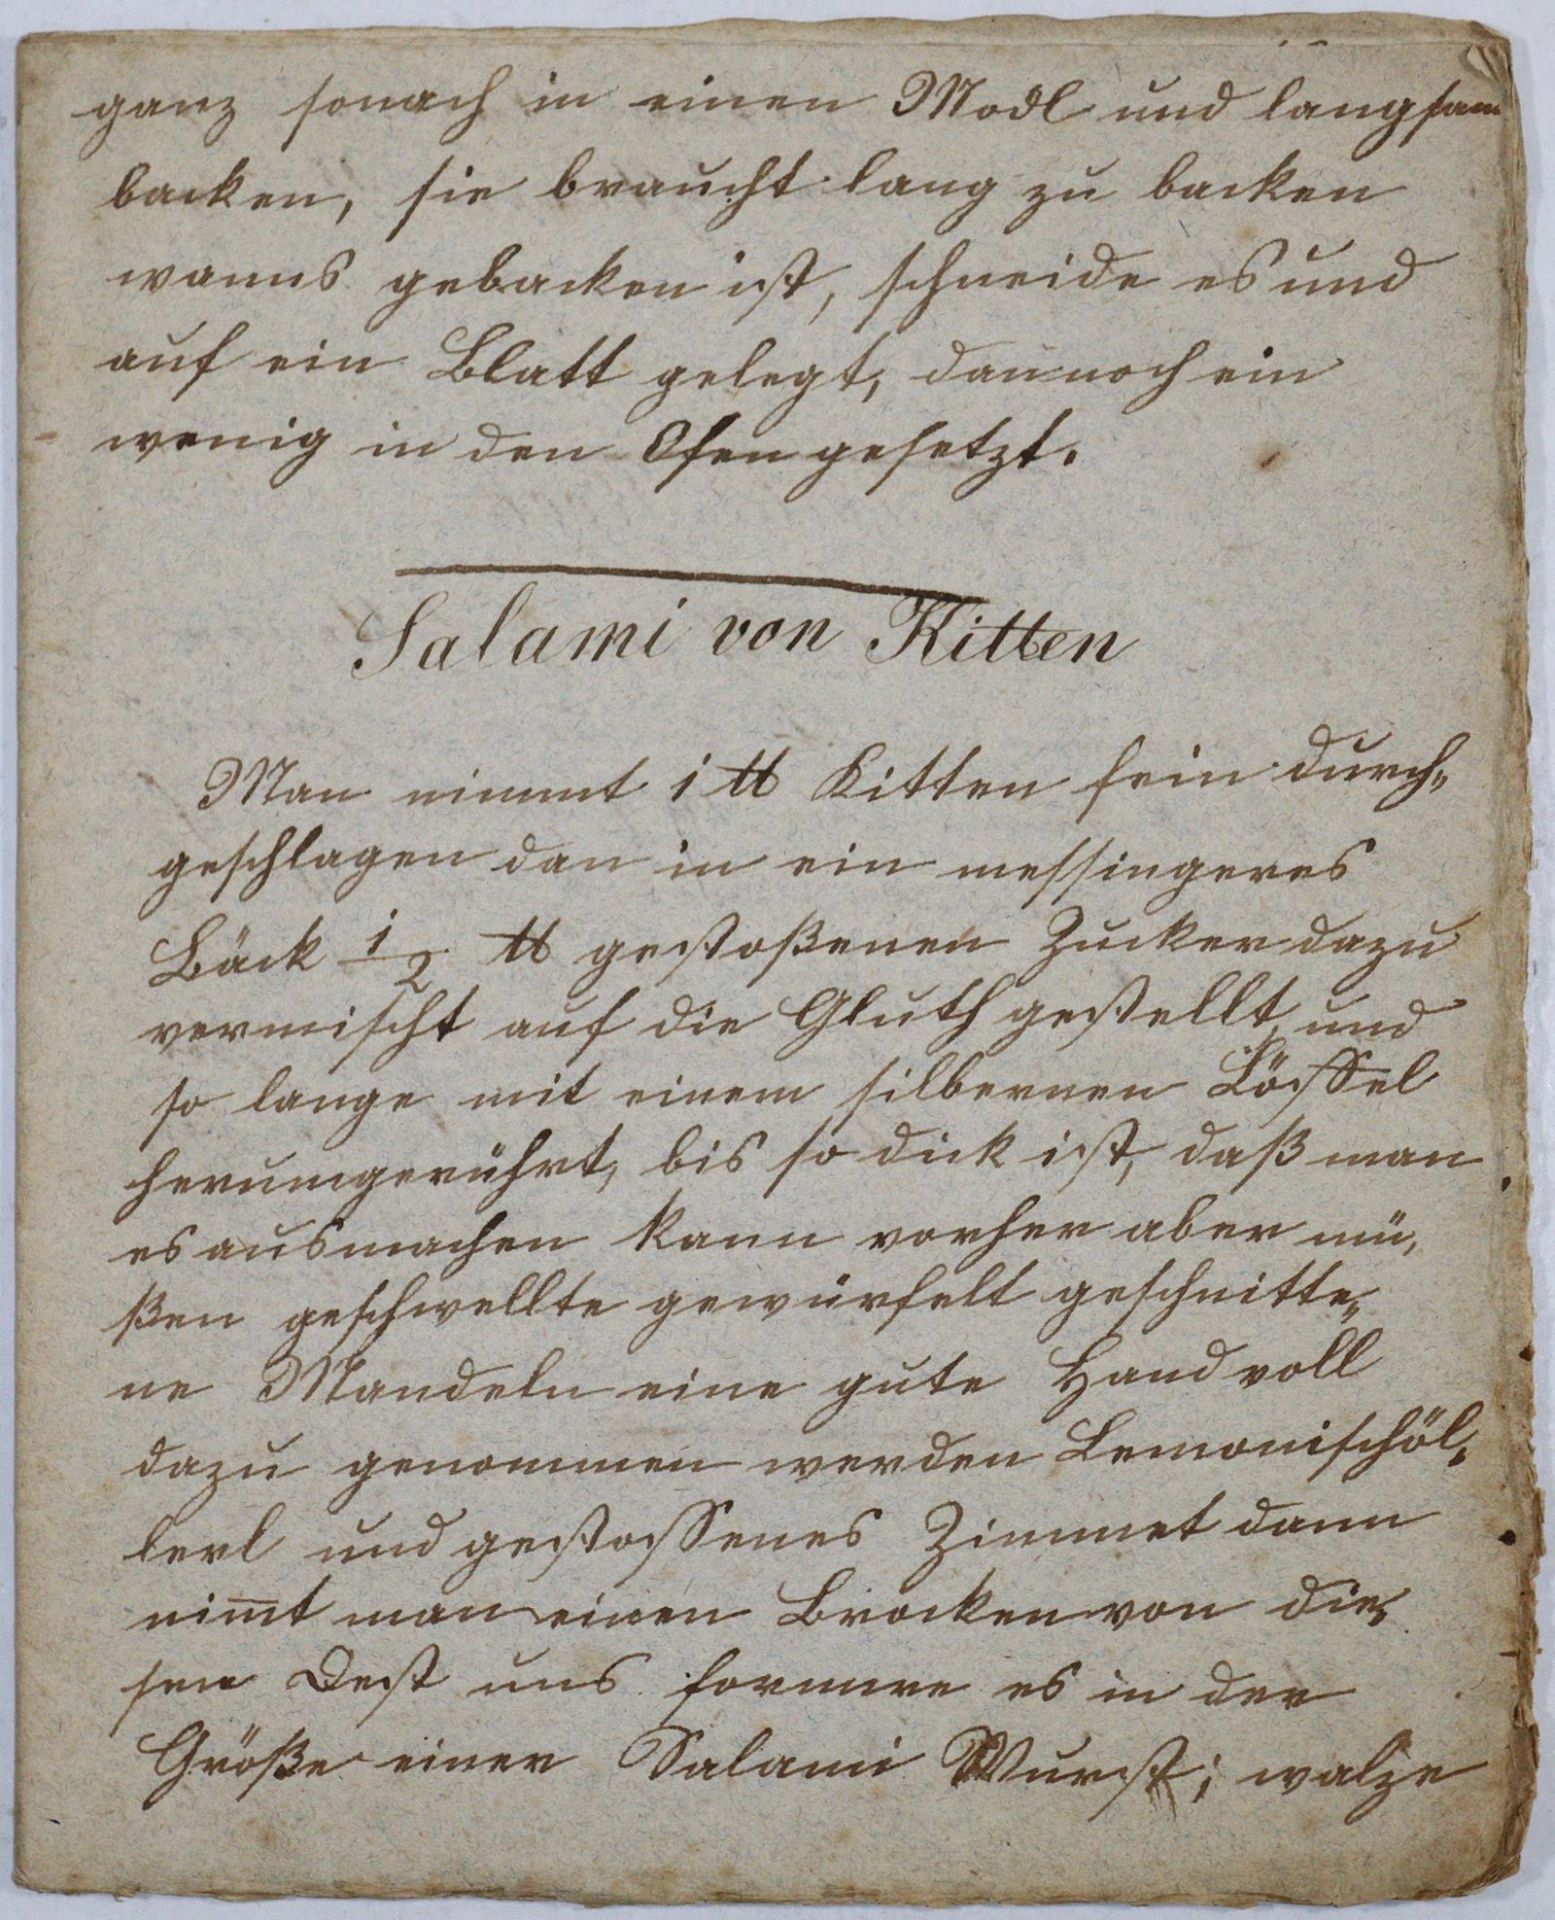 ganz sonach in einen Modl und langsam
backen, sie braucht lang zu backen
wanns gebacken ist, schneide es und
auf ein Blatt gelegt, dan noch ein
wenig in den Ofen gesetzt.
Salami von Kitten
Man nimmt 1 ℔ Kitten fein durch„
geschlagen dan in ein messingeres
Bäck 1/2 ℔ gestoßenen Zucker dazu
vermischt auf die Gluth gestellt, und
so lange mit einem silbernen Löffel
herumgerührt, bis so dick ist, daß man
es ausmachen kann vorher aber mü„
ßen geschwellte gewürfelt geschnitte„
ne Mandeln eine gute Hand voll
dazu genommen werden Lemonischöl„
lerl und gestossenes Zimmet dann
nim̄t man einen Brocken von die„
sen Dest uns formire es in der
Größe einer Salami Wurst; walze